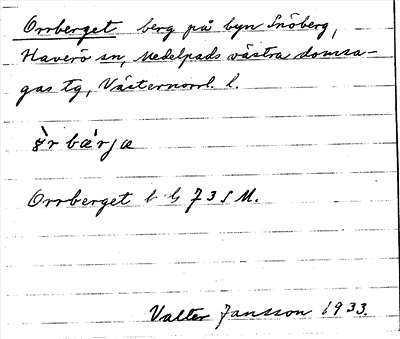 Orrberget berg på byn Snöberg,
Haverö sn, Medelpads västra domsa-
gas tg, Västernorrl. l.
bærjæ
Orrberget 73 S M.
Valter Jansson 1933.